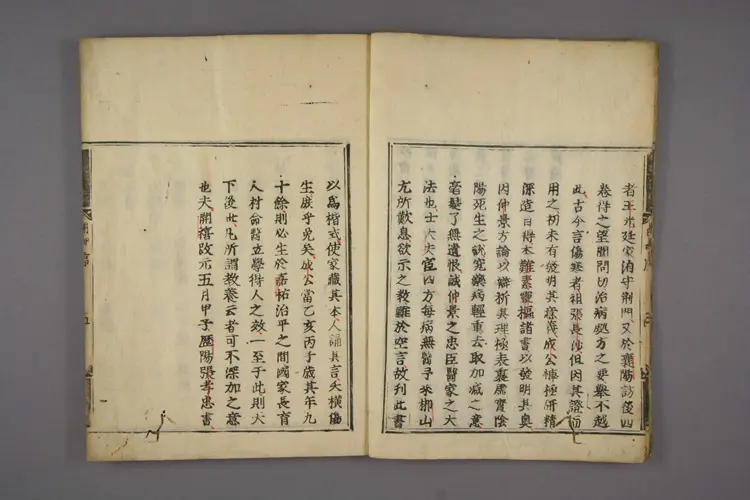 者王光廷家洎守荊門又於襄陽訪後四
卷得之望聞問切治病處方之要舉不越
此古今言傷寒者祖張長沙但因其證而
用之初未有發明其意義成公博極研精
深造自得本難素靈樞諸書以發明其奧
因仲景方論以辯析其理極表裏虛實陰
陽死生之說究藥病輕重去取加減之意
毫髮了無遺恨誠仲景之忠臣醫家之大
法也士大夫宦四方每病無醫予來郴山
尤所歎息欲示之教難於空言故刊此書
以為楷式使家藏其本人誦其言夭橫傷
生庶乎免矣成公當乙亥丙子歲其年九
十餘則必生於嘉祐治平之間國家長育
人材命醫立學得人之效一至於此則天
下後世凡所謂教養云者可不深加之意
也夫開禧改元五月甲子歷陽張孝忠書
五